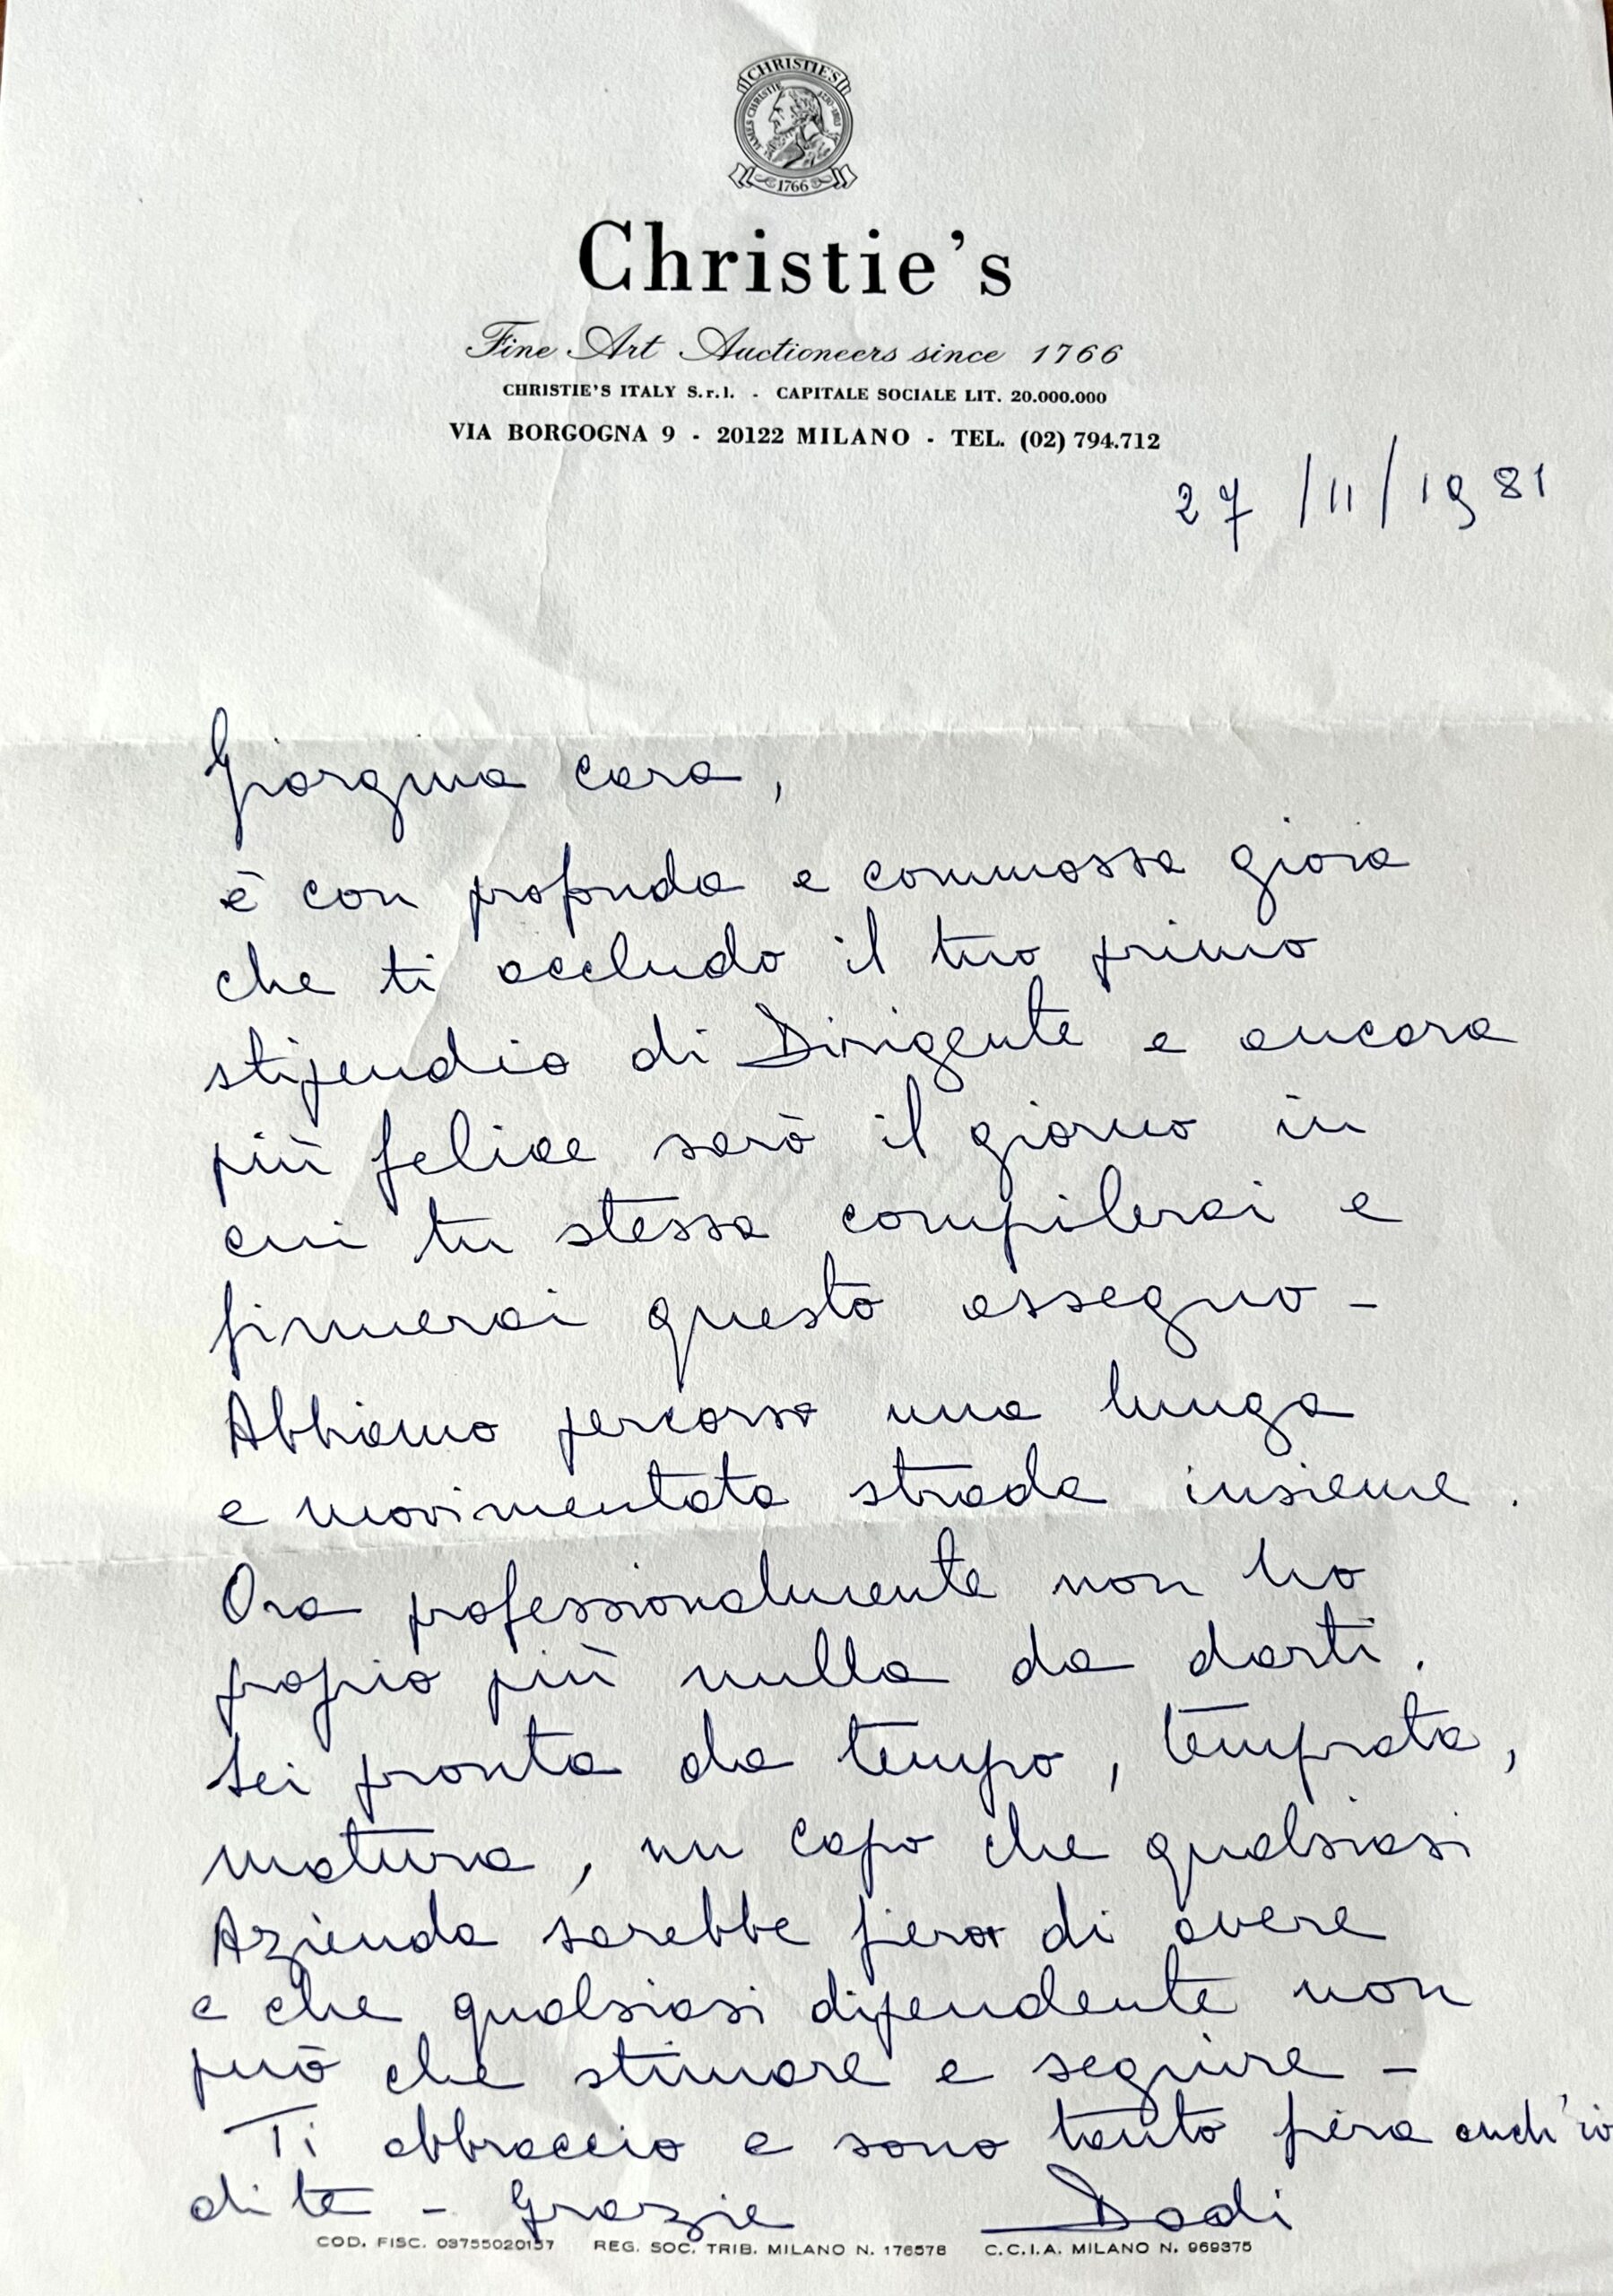 CHRISTIE'S
JAMES CHRISTIE 1730-1803
1766
Christie's
Fine Art Auctioneers since 1766
CHRISTIE'S ITALY S.r.l. - CAPITALE SOCIALE LIT. 20.000.000
VIA BORGOGNA 9 - 20122 MILANO - TEL. (02) 794.712
27/11/1981
Giorgina cara,
è con profonda e commossa gioia
che ti accludo il tuo primo
stipendio di Dirigente e ancora
più felice sarò il giorno in
cui tu stessa compilerai e
firmerai questo assegno -
Abbiamo percorso una lunga
e movimentata strada insieme.
Ora professionalmente non ho
propio più nulla da darti.
Sei pronta da tempo, temprata,
matura, un capo che qualsiasi
Azienda sarebbe fiera di avere
e che qualsiasi dipendente non
può che stimare e seguire -
Ti abbraccio e sono tanto fiera anch'io
di te - Grazie Dodi
COD. FISC. 03755020157 REG. SOC. TRIB. MILANO N. 176578 C.C.I.A. MILANO N. 969375